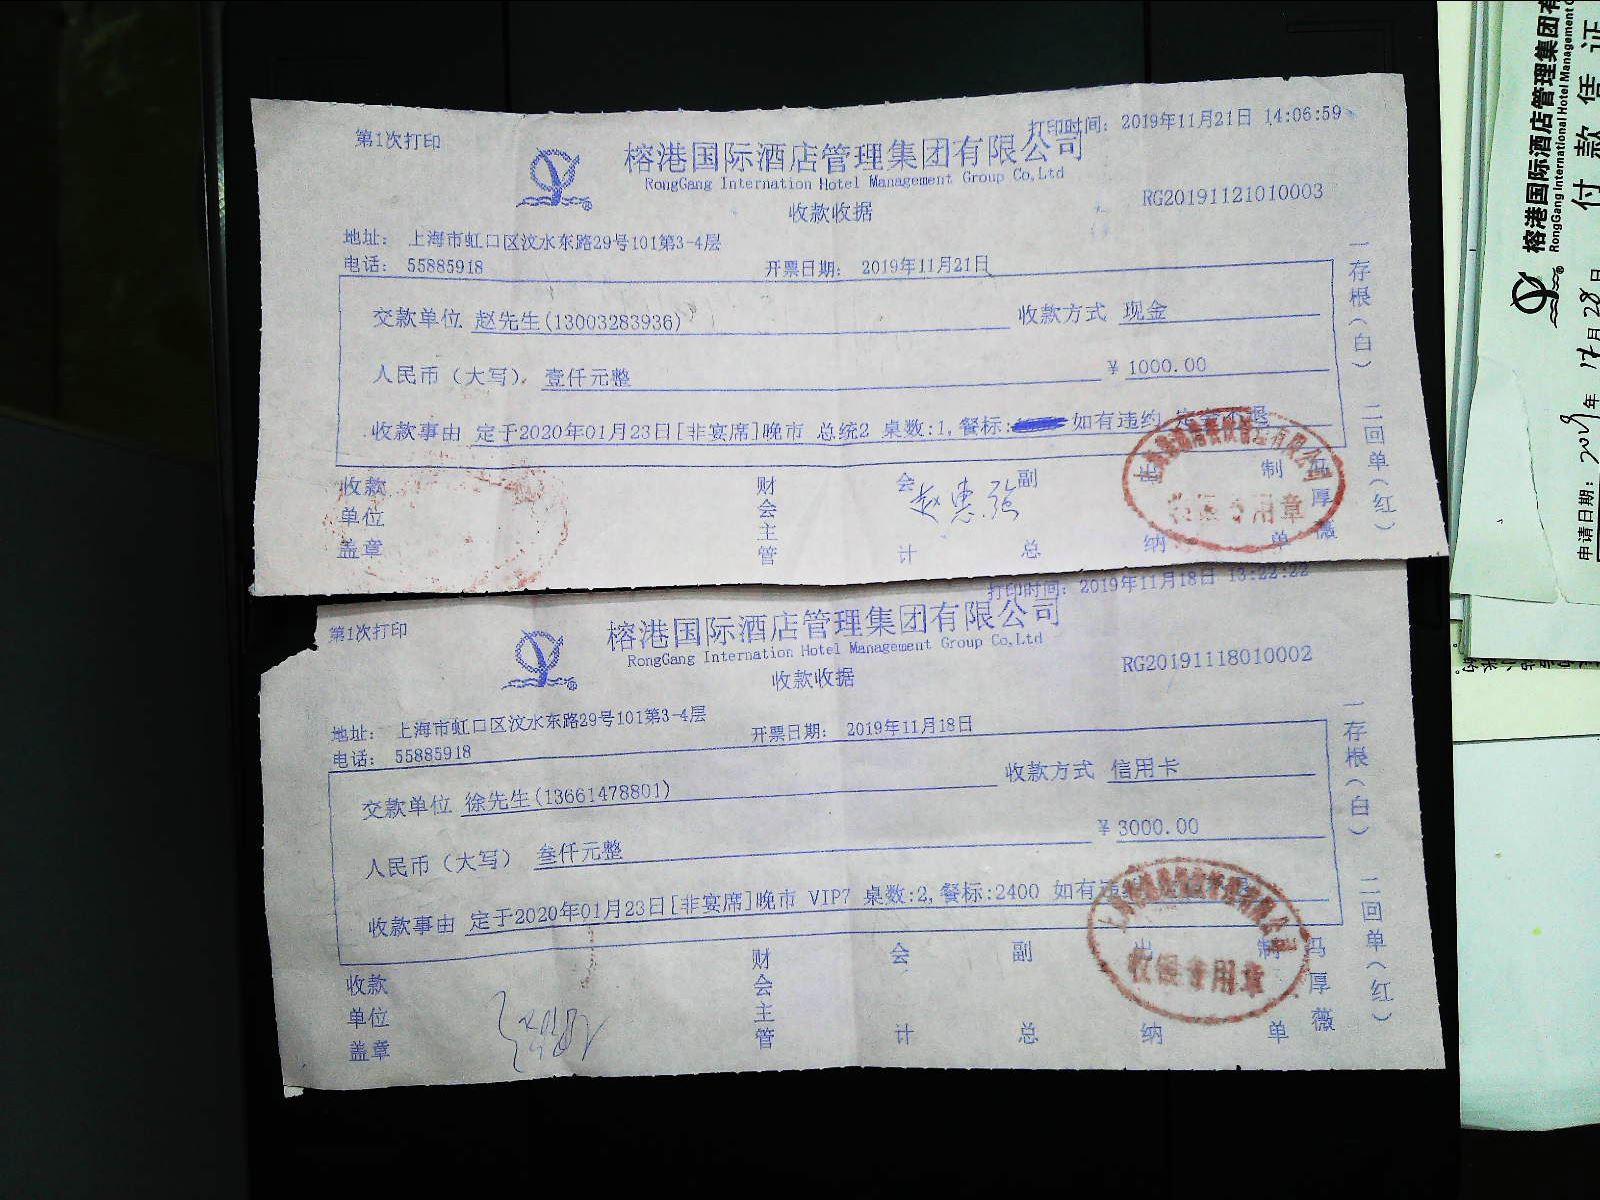 第1次打印
打印时间: 2019年11月21日 14:06:59
榕港国际酒店管理集团有限公司
RongGang Internation Hotel Management Group Co,Ltd
收款收据
RG20191121010003
地址: 上海市虹口区汶水东路29号101第3-4层
电话: 55885918
开票日期: 2019年11月21日
交款单位 赵先生(13003283936)
收款方式 现金
人民币(大写) 壹仟元整
¥ 1000.00
收款事由 定于2020年01月23日[非宴席]晚市 总统2 桌数:1,餐标: 如有违约 定金不退
收款单位盖章
财会主管
会计
副总
出纳
制单
冯厚薇
赵惠强
专用章
一存根(白) 二回单(红)
第1次打印
打印时间: 2019年11月18日 13:22:22
榕港国际酒店管理集团有限公司
RongGang Internation Hotel Management Group Co,Ltd
收款收据
RG20191118010002
地址: 上海市虹口区汶水东路29号101第3-4层
电话: 55885918
开票日期: 2019年11月18日
交款单位 徐先生(13661478801)
收款方式 信用卡
人民币(大写) 叁仟元整
¥ 3000.00
收款事由 定于2020年01月23日[非宴席]晚市 VIP7 桌数:2,餐标:2400 如有违约
收款单位盖章
财会主管
会计
副总
出纳
制单
冯厚薇
收银专用章
一存根(白) 二回单(红)
榕港国际酒店管理集团有
RongGang International Hotel Management
付款凭证
申请日期: 2019年12月28日